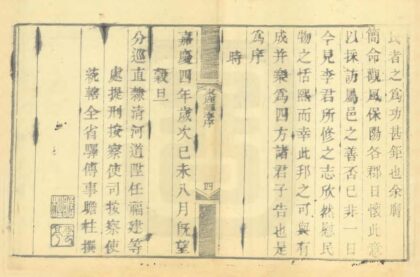 民者之爲功甚鉅也余膺
簡命觀風保陽各郡日懷此意
以採訪屬邑之善否已非一日
今見李君所修之志欣然慰民
物之恬熙而幸此邦之可與有
成并樂爲四方諸君子告也是
爲序
時
序 四
嘉慶四年歲次己未八月旣望
穀旦
分巡直隸清河道陞任福建等
處提刑按察使司按察使
兼轄全省驛傳事瞻柱撰